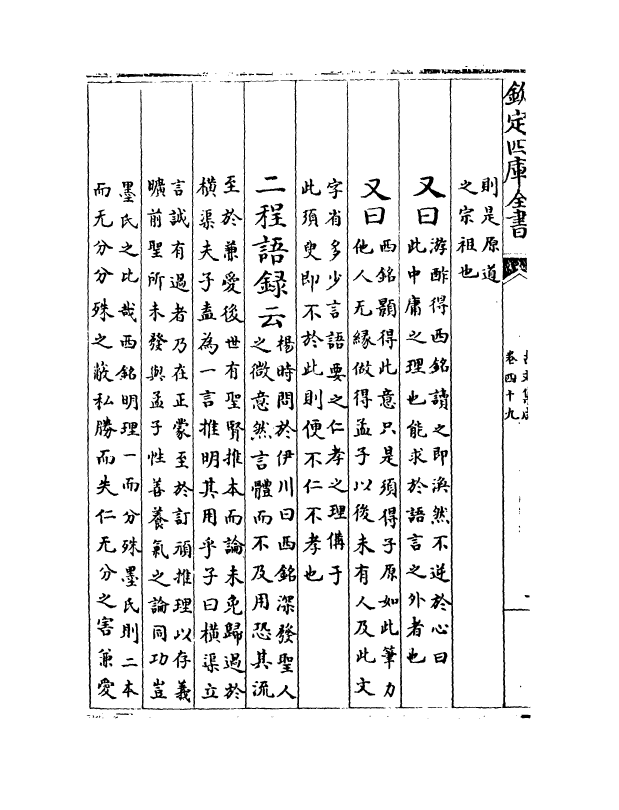 欽定四庫全書
卷四十九
則是原道
之宗祖也
又曰
游酢得西銘讀之即渙然不逆於心曰
此中庸之理也能求於語言之外者也
又曰
西銘顥得此意只是須得子厚如此筆力
他人无緣做得孟子以後未有人及此文
字省多少言語要之仁孝之理備于
此須臾即不於此則便不仁不孝也
二程語録云
楊時問於伊川曰西銘深發聖人
之微意然言體而不及用恐其流
至於兼愛後世有聖賢推本而論未免歸過於
橫渠夫子盍為一言推明其用乎子曰橫渠立
言誠有過者乃在正蒙至於訂頑推理以存義
曠前聖所未發與孟子性善養氣之論同功豈
墨氏之比哉西銘明理一而分殊墨氏則二本
而无分分殊之蔽私勝而失仁无分之害兼愛